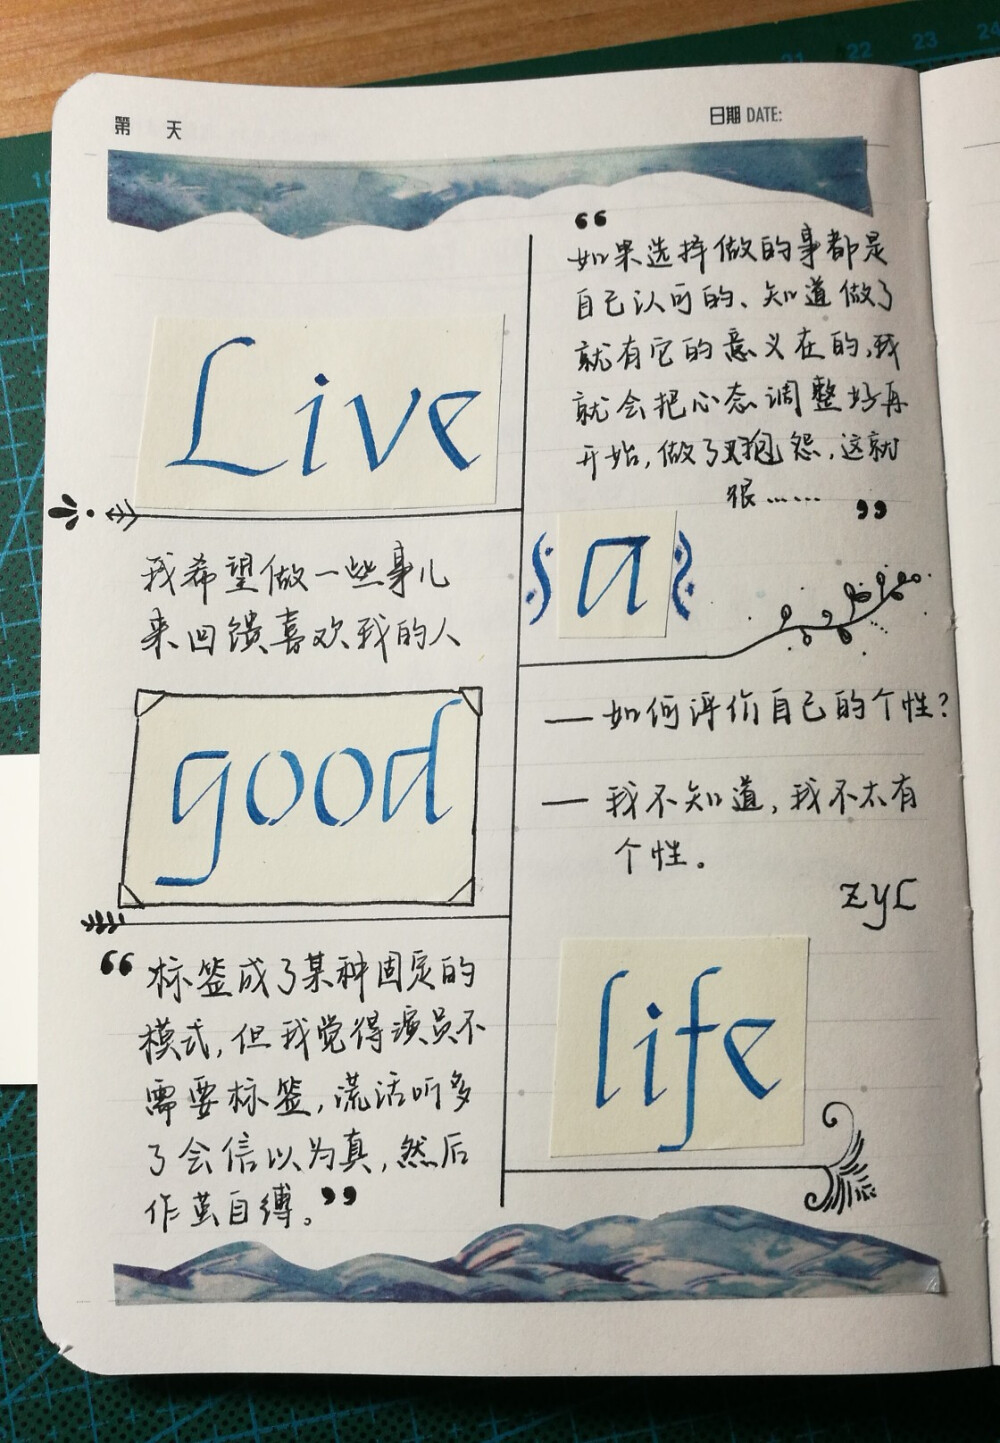 第 天
日期 DATE:
Live
我希望做一些事儿
来回馈喜欢我的人
good
“标签成了某种固定的
模式,但我觉得演员不
需要标签,谎话听多
了会信以为真,然后
作茧自缚。”
“
如果选择做的事都是
自己认可的、知道做了
就有它的意义在的,我
就会把心态调整好再
开始,做了又抱怨,这就
很……
”
a
——如何评价自己的个性?
——我不知道,我不太有
个性。
ZYL
life
21 22 23 24
10